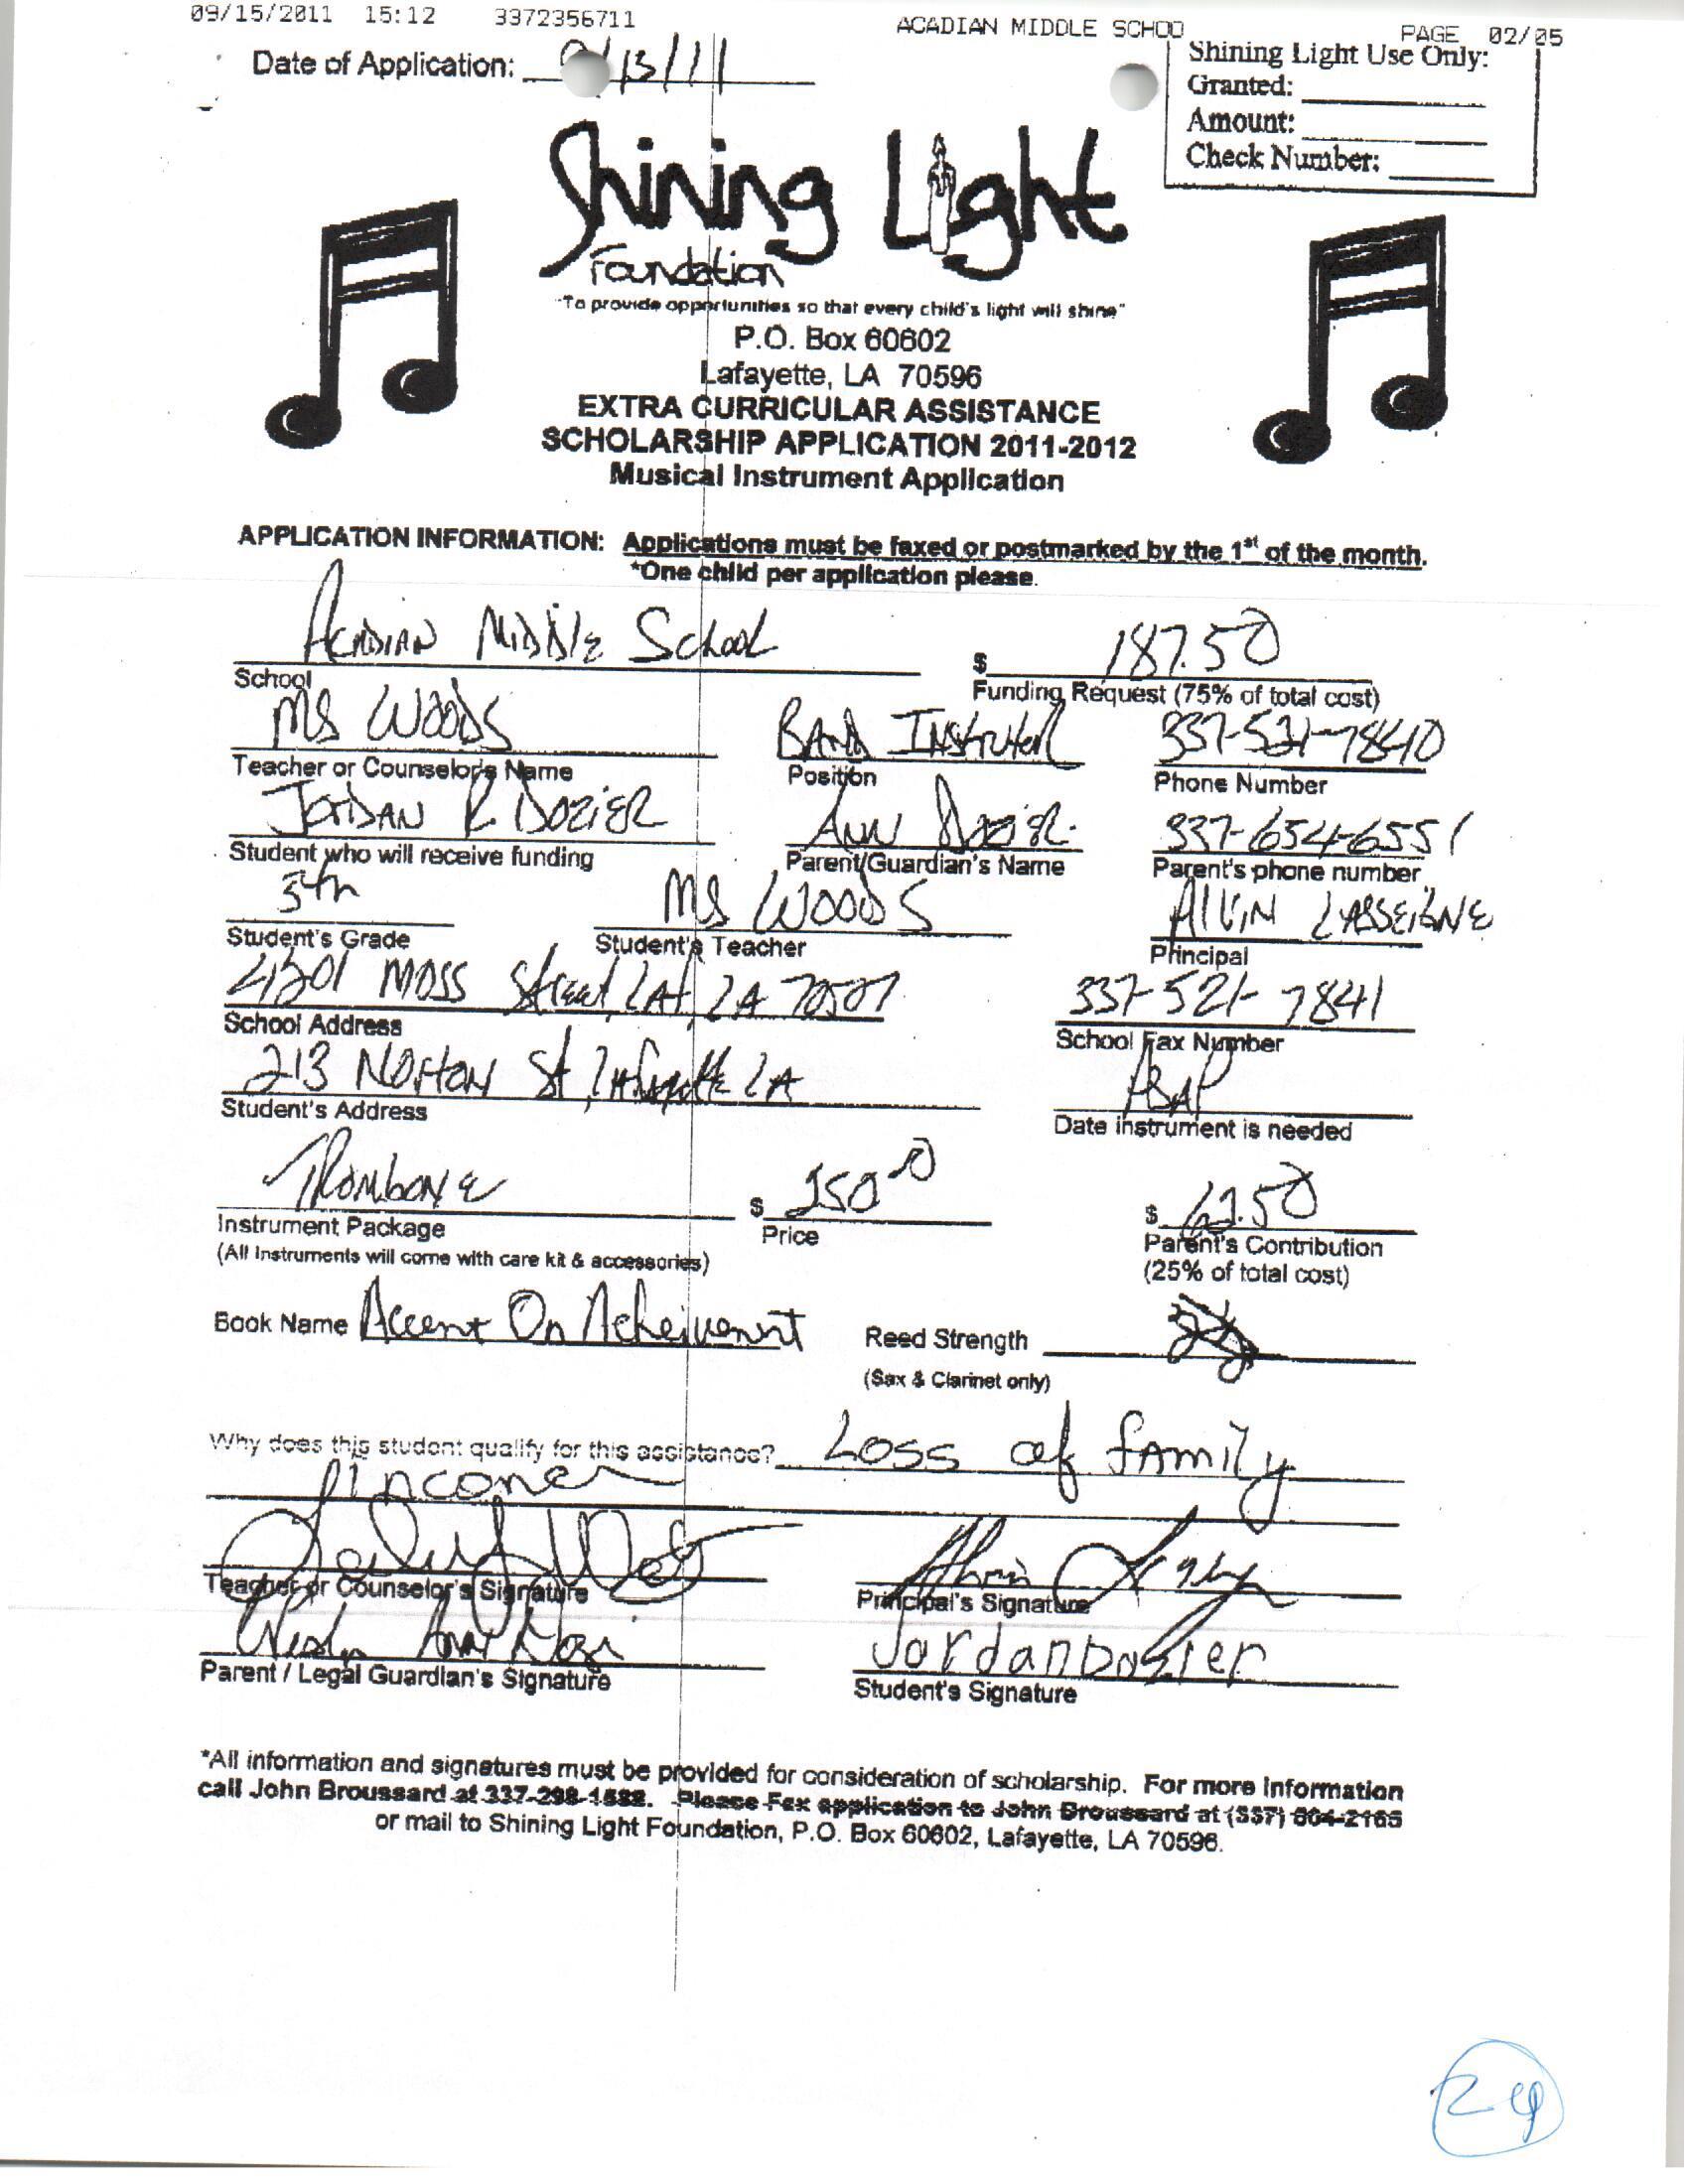 09/15/2011 15:12 3372356711 ACADIAN MIDDLE SCHOO PAGE 02/05
Date of Application: /13/11
Shining Light Use Only:
Granted:
Amount:
Check Number:
Shining Light
Foundation
"To provide opportunities so that every child's light will shine"
P.O. Box 60602
Lafayette, LA 70596
EXTRA CURRICULAR ASSISTANCE
SCHOLARSHIP APPLICATION 2011-2012
Musical Instrument Application
APPLICATION INFORMATION: Applications must be faxed or postmarked by the 1st of the month.
*One child per application please.
ACADIAN MIDDLE SCHOOL $ 187.50
School Funding Request (75% of total cost)
MS WOODS BAND 337-521-7840
Teacher or Counselor's Name Position Phone Number
JORDAN R DOZIER ANN DOZIER 337-654-6551
Student who will receive funding Parent/Guardian's Name Parent's phone number
5th MS WOODS ALVIN LASSEIGNE
Student's Grade Student's Teacher Principal
4201 MOSS Street, LAF, LA 70507 337-521-7841
School Address School Fax Number
213 NORTON St, Lafayette LA ASAP
Student's Address Date instrument is needed
TROMBONE $ 250.00 $ 62.50
Instrument Package Price Parent's Contribution
(All Instruments will come with care kit & accessories) (25% of total cost)
Book Name Accent On Acheivement Reed Strength
(Sax & Clarinet only)
Why does this student qualify for this assistance? Loss of family
income
Teacher or Counselor's Signature Principal's Signature
Jordan Dozier
Parent / Legal Guardian's Signature Student's Signature
*All information and signatures must be provided for consideration of scholarship. For more information
call John Broussard at 337-298-1588. Please Fax application to John Broussard at (337) 604-2165
or mail to Shining Light Foundation, P.O. Box 60602, Lafayette, LA 70596.
24